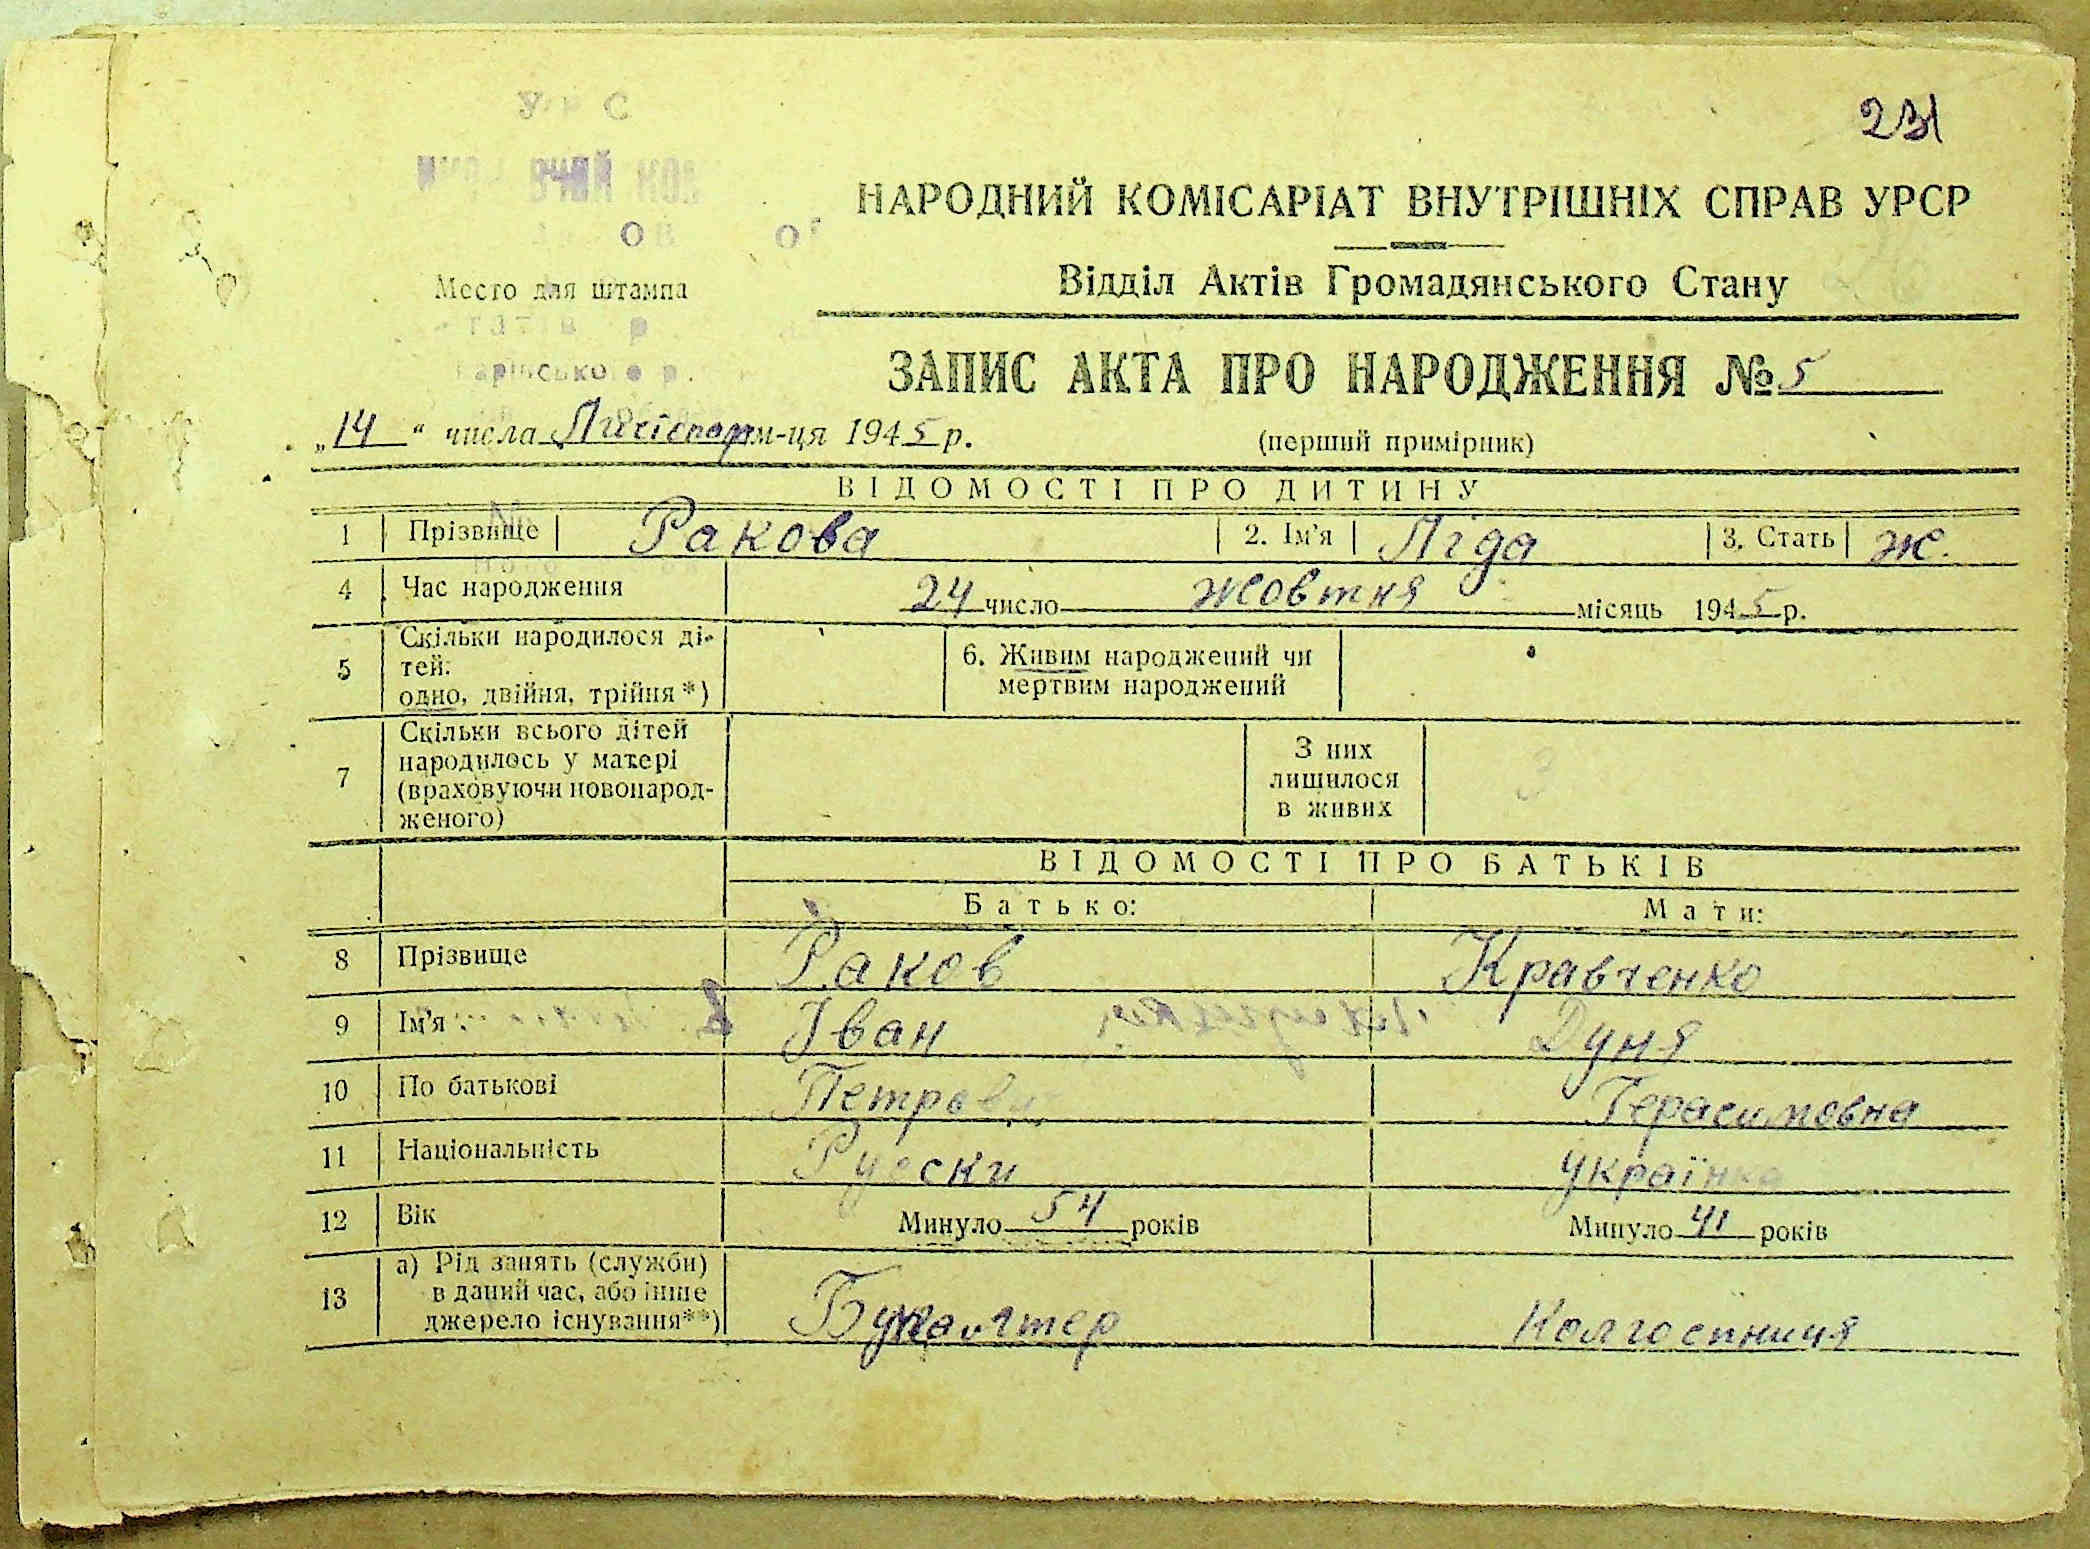 231
НАРОДНИЙ КОМІСАРІАТ ВНУТРІШНІХ СПРАВ УРСР
Відділ Актів Громадянського Стану
Место для штампа
ЗАПИС АКТА ПРО НАРОДЖЕННЯ № 5
„14“ числа Листопад м-ця 1945 р.
(перший примірник)
ВІДОМОСТІ ПРО ДИТИНУ
1 Прізвище Ракова 2. Ім'я Ліда 3. Стать ж.
4 Час народження 24 число жовтня місяць 1945 р.
5 Скільки народилося ді-
тей:
одно, двійня, трійня*)
6. Живим народжений чи
мертвим народжений
7 Скільки всього дітей
народилось у матері
(враховуючи новонарод-
женого)
З них
лишилося
в живих
3
ВІДОМОСТІ ПРО БАТЬКІВ
Батько: Мати:
8 Прізвище Раков Кравченко
9 Ім'я Іван Дуня
10 По батькові Петрович Герасимовна
11 Національність Руски українка
12 Вік Минуло 54 років Минуло 41 років
13 а) Рід занять (служби)
в даний час, або інше
джерело існування**)
Бухгалтер Колгоспниця